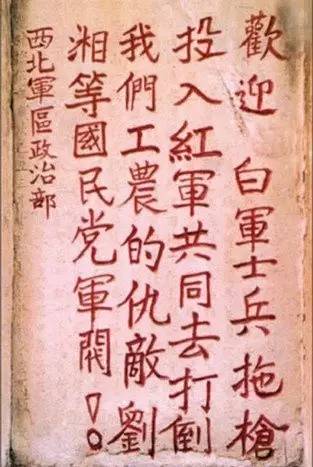 歡迎 白軍士兵拖槍
投入紅軍共同去打倒
我們工農的仇敵劉
湘等國民党軍閥！。
西北軍區政治部